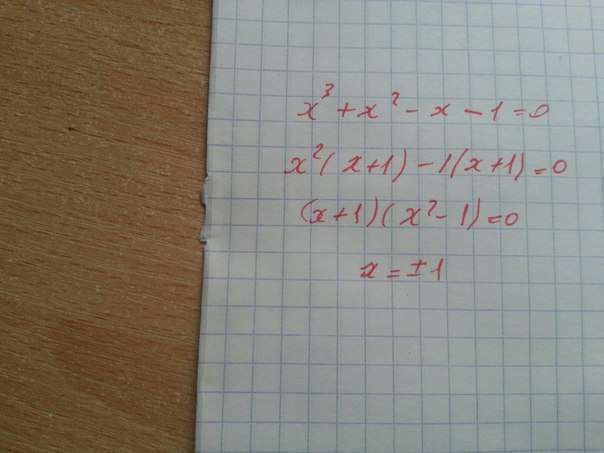 x³ + x² - x - 1 = 0
x²(x+1) - 1(x+1) = 0
(x+1)(x² - 1) = 0
x = ±1